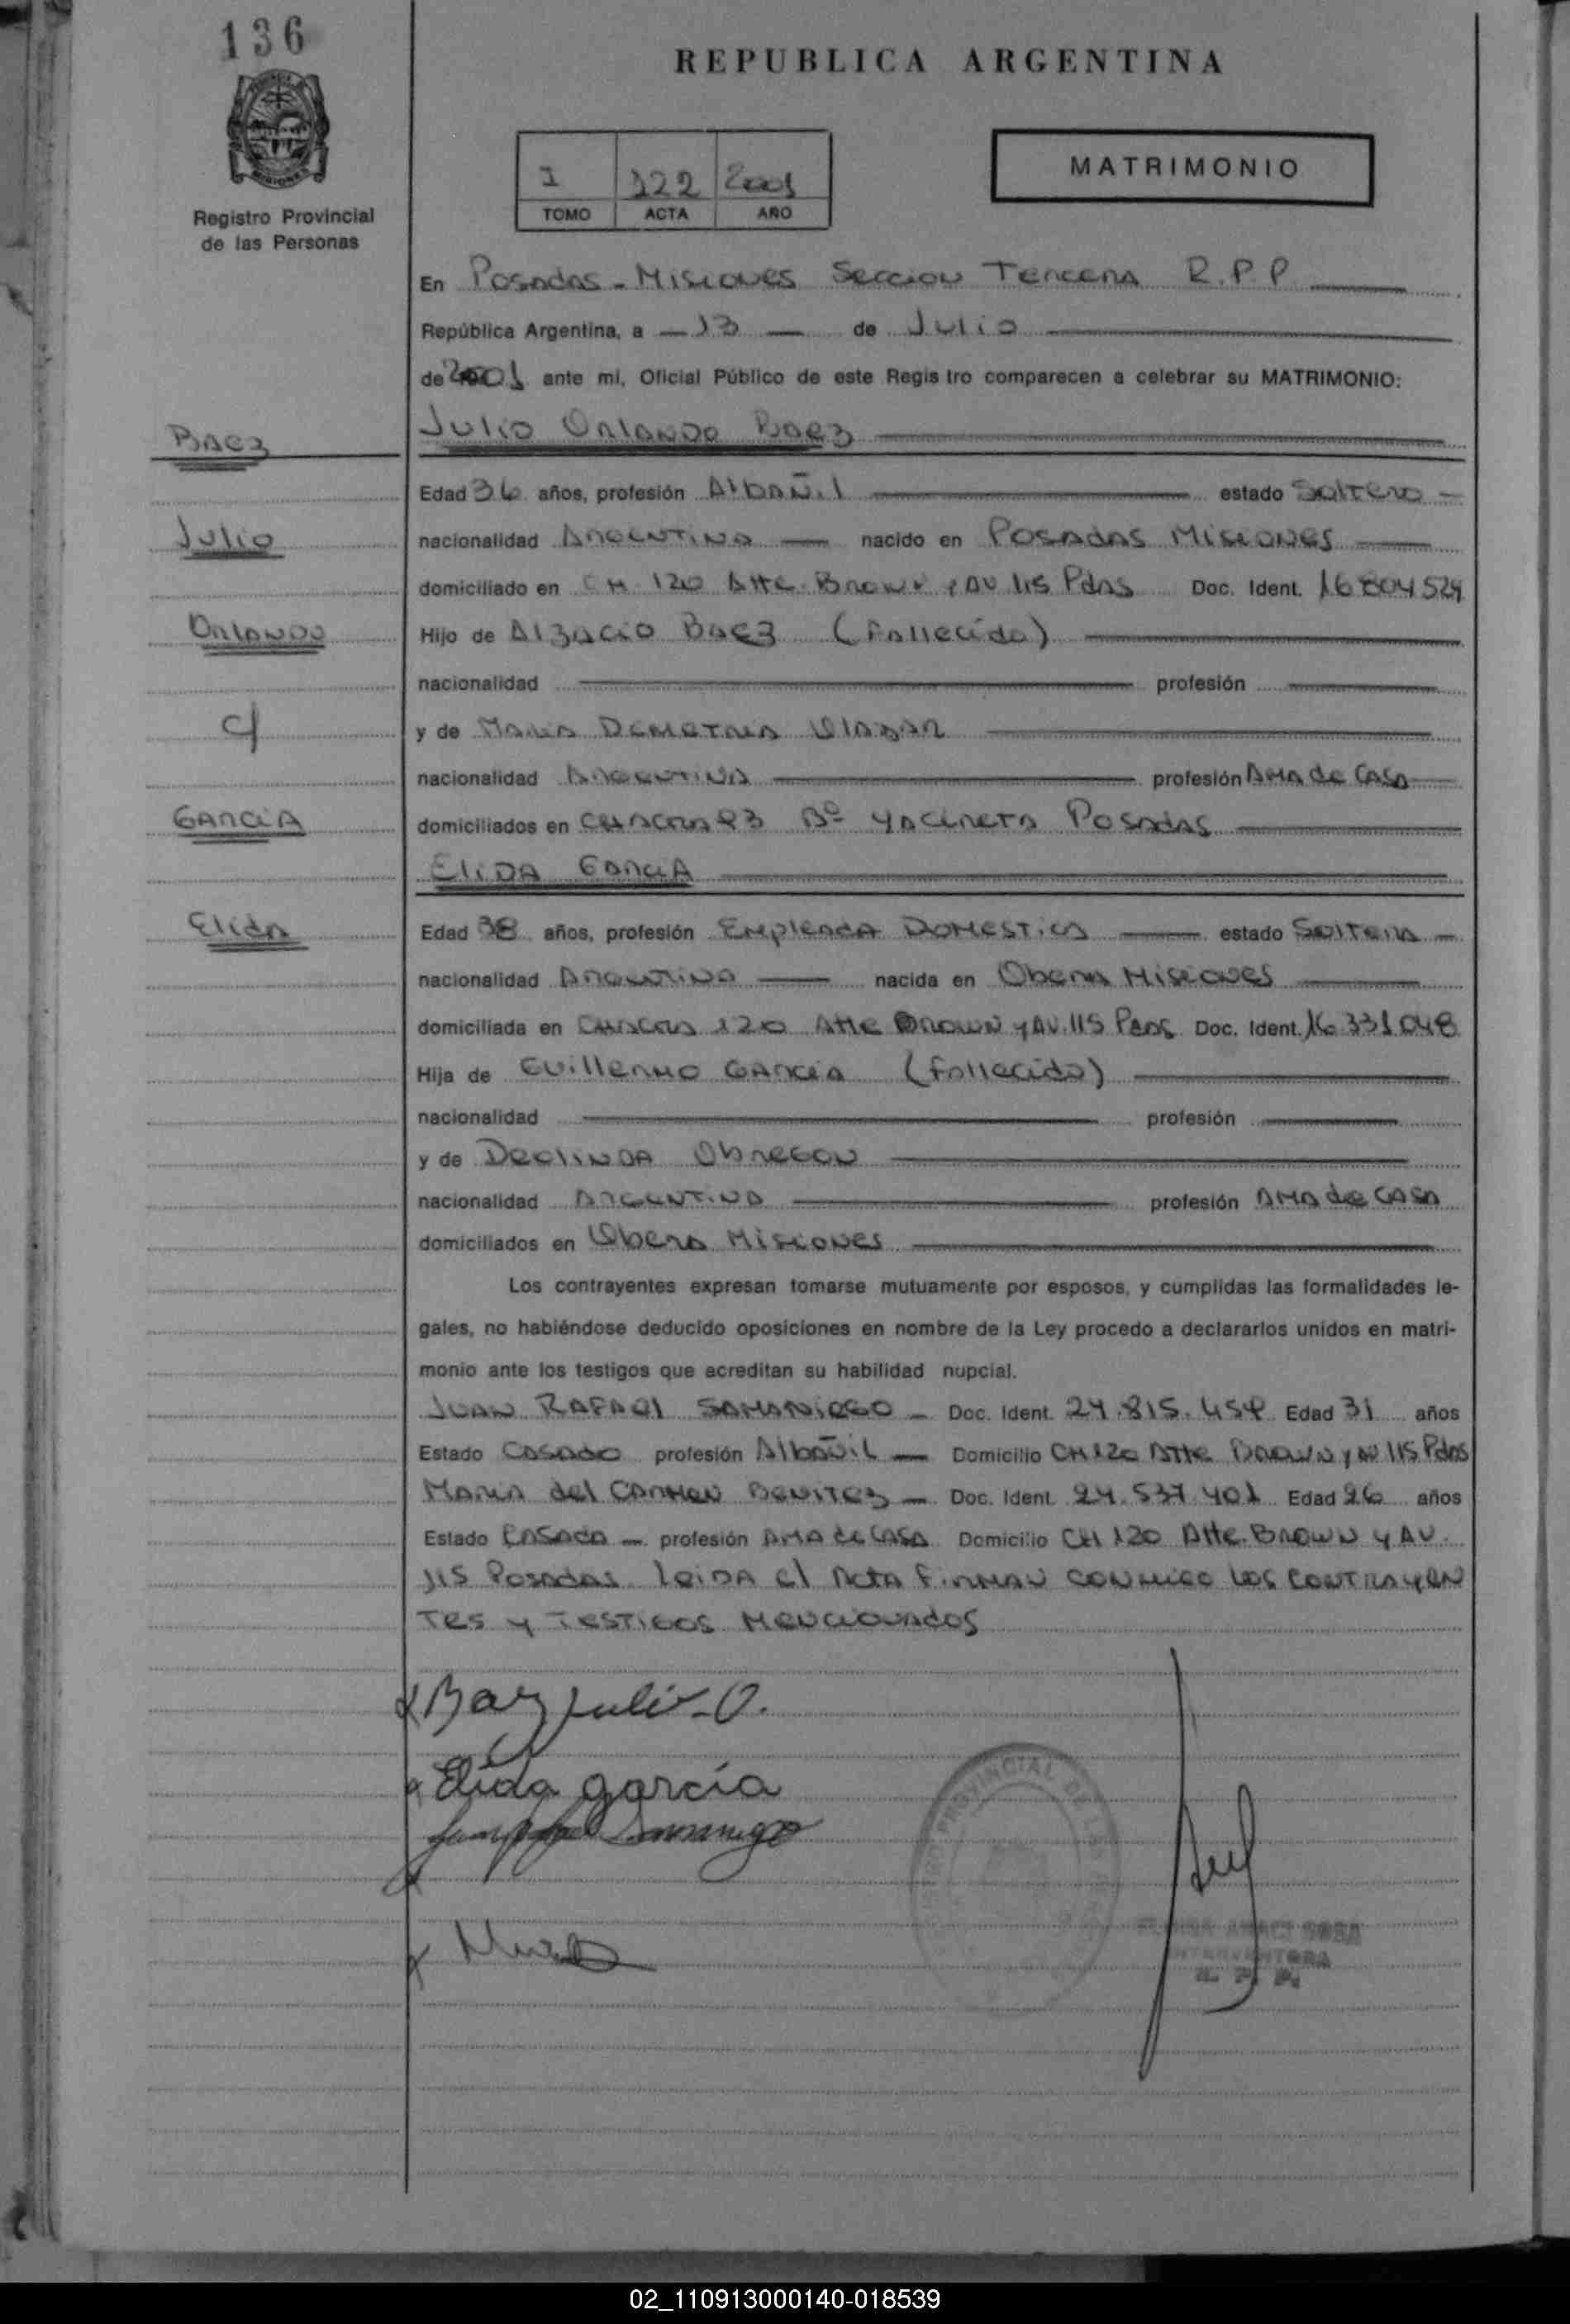 136
REPUBLICA ARGENTINA
I 122 2001
TOMO ACTA AÑO
MATRIMONIO
Registro Provincial
de las Personas
En Posadas - Misiones Seccion Tercera R.P.P
República Argentina, a 13 de Julio
de 2001 ante mi, Oficial Público de este Registro comparecen a celebrar su MATRIMONIO:
Baez
Julio Orlando Baez
Edad 36 años, profesión Albañil estado Soltero
Julio
nacionalidad Argentina nacido en Posadas Misiones
domiciliado en CH 120 Atte. Brown y AV 115 Pdas Doc. Ident. 16804524
Orlando
Hijo de Baez (Fallecido)
nacionalidad profesión
c/
y de Maria Demetria
nacionalidad Argentina profesión AMA de CASA
Garcia
domiciliados en Chacra Bº Yacireta Posadas
Elida Garcia
Elida
Edad 38 años, profesión Empleada Domestica estado Soltera
nacionalidad Argentina nacida en Obera Misiones
domiciliada en Chacra 120 Atte Brown y AV. 115 Pdas Doc. Ident. 16 331 048
Hija de Guillermo Garcia (Fallecido)
nacionalidad profesión
y de Deolinda Obregon
nacionalidad Argentina profesión AMA de CASA
domiciliados en Obera Misiones
Los contrayentes expresan tomarse mutuamente por esposos, y cumplidas las formalidades le-
gales, no habiéndose deducido oposiciones en nombre de la Ley procedo a declararlos unidos en matri-
monio ante los testigos que acreditan su habilidad nupcial.
Juan Rafael Samaniego Doc. Ident. Edad 31 años
Estado Casado profesión Albañil Domicilio CH 120 Atte Brown y AV 115 Pdas
Maria del Carmen Benitez Doc. Ident. 24.537.401 Edad 26 años
Estado Casada profesión AMA de CASA Domicilio CH 120 Atte. Brown y AV.
115 Posadas. Leida el Acta Firman conmigo los contrayen
tes y testigos mencionados
Baez Julio O.
Elida garcía
PROVINCIAL DE LAS
SOSA
INTERVENTORA
R. P. P.
02_110913000140-018539